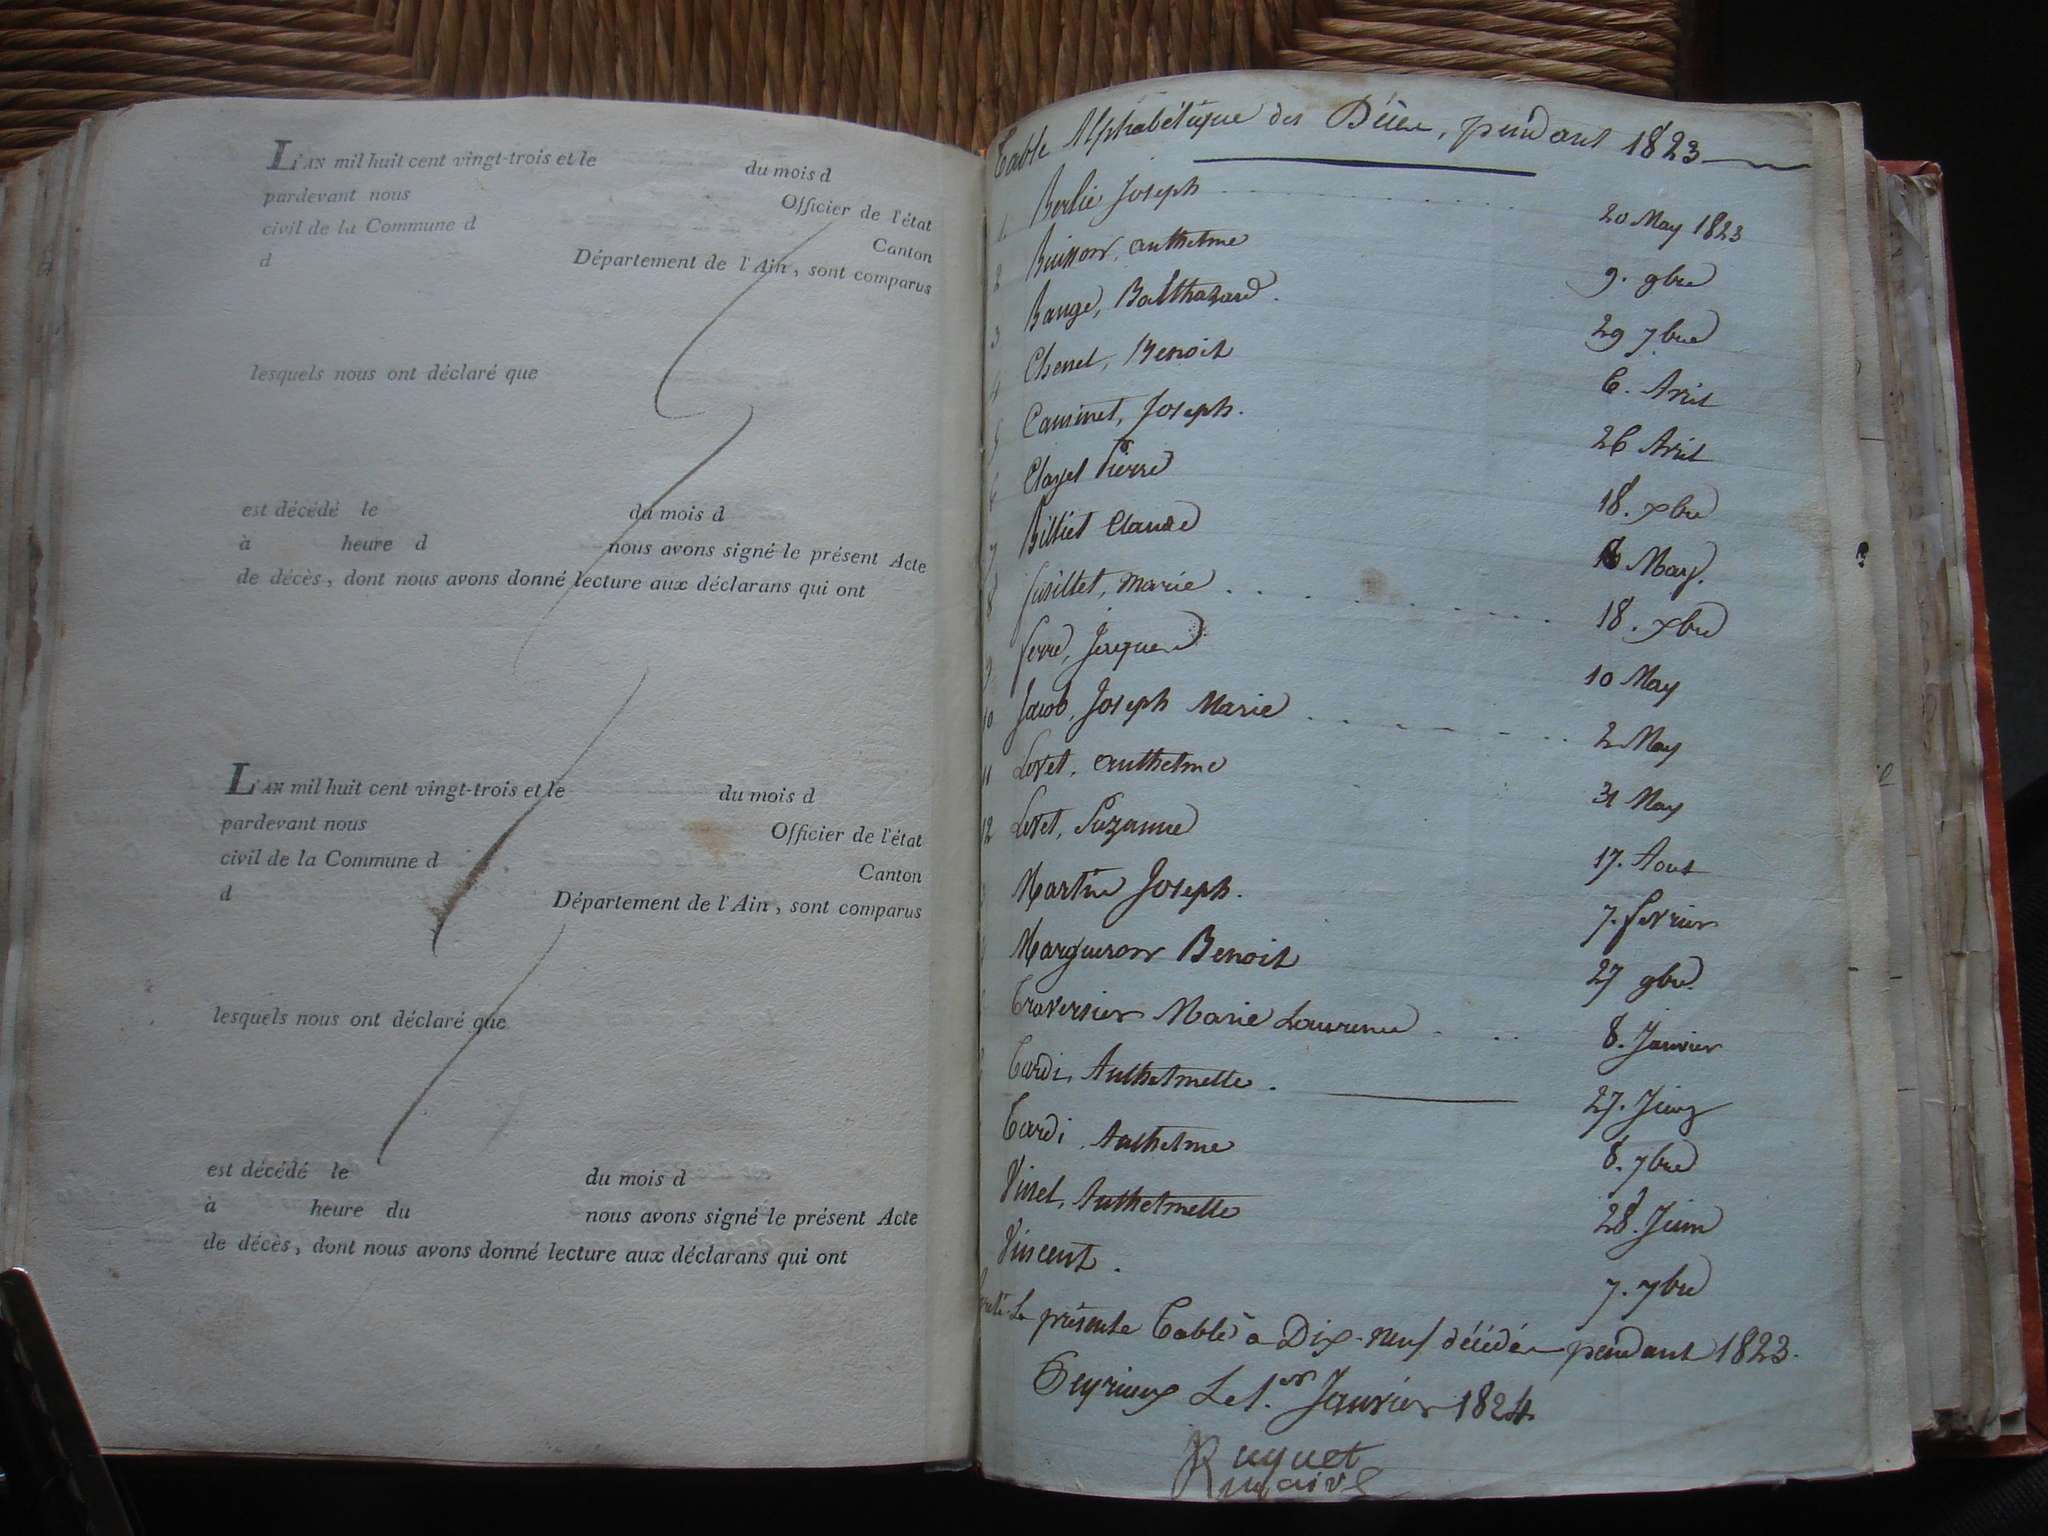 L'AN mil huit cent vingt-trois et le du mois d
pardevant nous Officier de l'état
civil de la Commune d Canton
d Département de l'Ain, sont comparus
lesquels nous ont déclaré que
est décédé le du mois d
à heure d nous avons signé le présent Acte
de décès, dont nous avons donné lecture aux déclarans qui ont
L'AN mil huit cent vingt-trois et le du mois d
pardevant nous Officier de l'état
civil de la Commune d Canton
d Département de l'Ain, sont comparus
lesquels nous ont déclaré que
est décédé le du mois d
à heure du nous avons signé le présent Acte
de décès, dont nous avons donné lecture aux déclarans qui ont
Table Alphabétique des Décès, pendant 1823
1. Berlie Joseph 20 May 1823
2 Buisson, anthelme 9. 9bre
3 Bange, Balthazard. 29 7bre
4 Benoit 6. Avril
5 Joseph. 26 Avril
6 Clayet Pierre 18. xbre
7 Billiet Claude May.
8 fusillet, marie 18. xbre
9 ferre, Jacques 10 May
10 Jacob, Joseph Marie 2 May
11 Lovet, anthelme 31 May
12 Lovet, Suzanne 17. Aout
Martin Joseph. 7. fevrier
Margueron Benoit 27 9bre.
Traversier Marie Laurence 8. Janvier
Tardi, Anthelmette. 27. Juin
Tardi, Anthelme 8. 7bre
Anthelmette 28. Juin
Vincent. 7. 7bre
La présente Table à Dix-neuf décédés pendant 1823.
Peyrieux Le 1.er Janvier 1824
Ruguet
maire